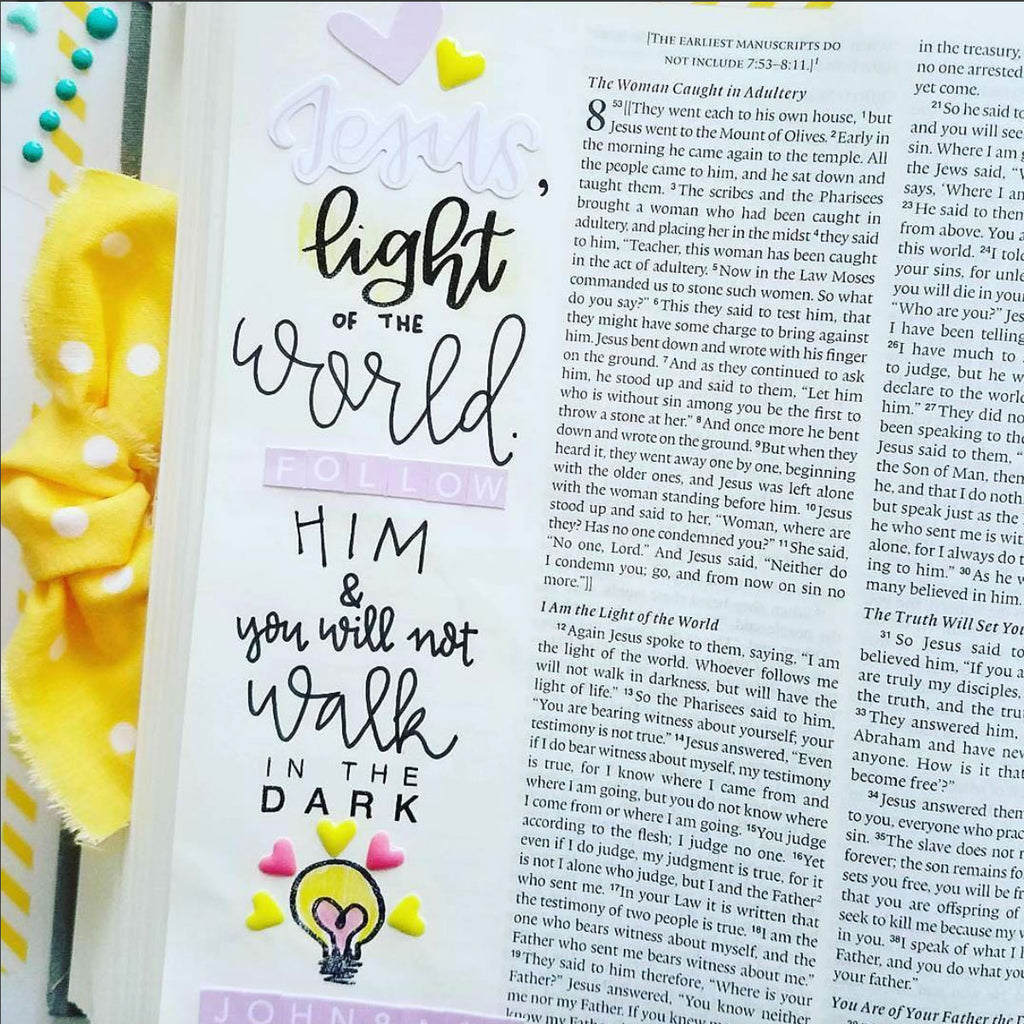 Jesus,
light
OF THE
world.
FOLLOW
HIM
&
you will not
walk
IN THE
DARK
[THE EARLIEST MANUSCRIPTS DO
NOT INCLUDE 7:53–8:11.]1
The Woman Caught in Adultery
8 53[[They went each to his own house, 1but
Jesus went to the Mount of Olives. 2Early in
the morning he came again to the temple. All
the people came to him, and he sat down and
taught them. 3The scribes and the Pharisees
brought a woman who had been caught in
adultery, and placing her in the midst 4they said
to him, “Teacher, this woman has been caught
in the act of adultery. 5Now in the Law Moses
commanded us to stone such women. So what
do you say?” 6This they said to test him, that
they might have some charge to bring against
him. Jesus bent down and wrote with his finger
on the ground. 7And as they continued to ask
him, he stood up and said to them, “Let him
who is without sin among you be the first to
throw a stone at her.” 8And once more he bent
down and wrote on the ground. 9But when they
heard it, they went away one by one, beginning
with the older ones, and Jesus was left alone
with the woman standing before him. 10Jesus
stood up and said to her, “Woman, where are
they? Has no one condemned you?” 11She said,
“No one, Lord.” And Jesus said, “Neither do
I condemn you; go, and from now on sin no
more.”]]
I Am the Light of the World
12Again Jesus spoke to them, saying, “I am
the light of the world. Whoever follows me
will not walk in darkness, but will have the
light of life.” 13So the Pharisees said to him,
“You are bearing witness about yourself; your
testimony is not true.” 14Jesus answered, “Even
if I do bear witness about myself, my testimony
is true, for I know where I came from and
where I am going, but you do not know where
I come from or where I am going. 15You judge
according to the flesh; I judge no one. 16Yet
even if I do judge, my judgment is true, for it
is not I alone who judge, but I and the Father2
who sent me. 17In your Law it is written that
the testimony of two people is true. 18I am the
one who bears witness about myself, and the
Father who sent me bears witness about me.”
19They said to him therefore, “Where is your
Father?” Jesus answered, “You know neither
me nor my Father. If you knew
in the treasury,
no one arrested
yet come.
21So he said to
and you will see
sin. Where I am
the Jews said,
says, ‘Where I am
23He said to them
from above. You
this world. 24I told
your sins, for
you will die in your
“Who are you?”
I have been telling
26I have much to
to judge, but he
declare to the world
him.” 27They did
been speaking to
Jesus said to them,
the Son of Man, then
he, and that I do
but speak just as the
he who sent me is
alone, for I always do
ing to him.” 30As he
many believed in him.
The Truth Will Set You
31So Jesus said to
believed him, “If you
are truly my disciples,
the truth, and the
33They answered him,
Abraham and have
anyone. How is it that
become free’?”
34Jesus answered them
to you, everyone who
sin. 35The slave does not
forever; the son remains
sets you free, you will be
that you are offspring of
seek to kill me because my
in you. 38I speak of what I
Father, and you do what you
your father.”
You Are of Your Father the
JOHN 8